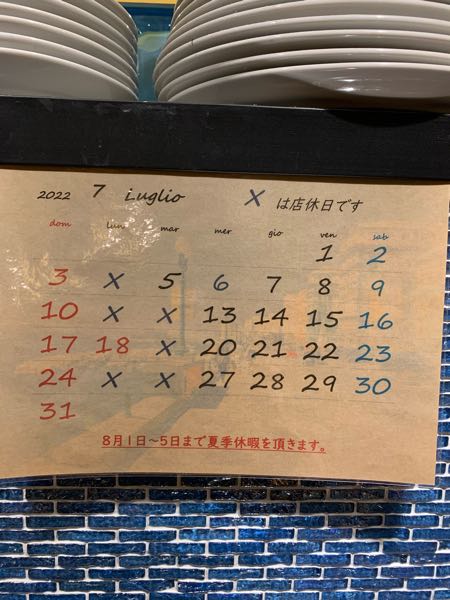 2022 7 Luglio X は店休日です
dom lun mar mer gio ven sab
1 2
3 X 5 6 7 8 9
10 X X 13 14 15 16
17 18 X 20 21 22 23
24 X X 27 28 29 30
31
8月1日~5日まで夏季休暇を頂きます。